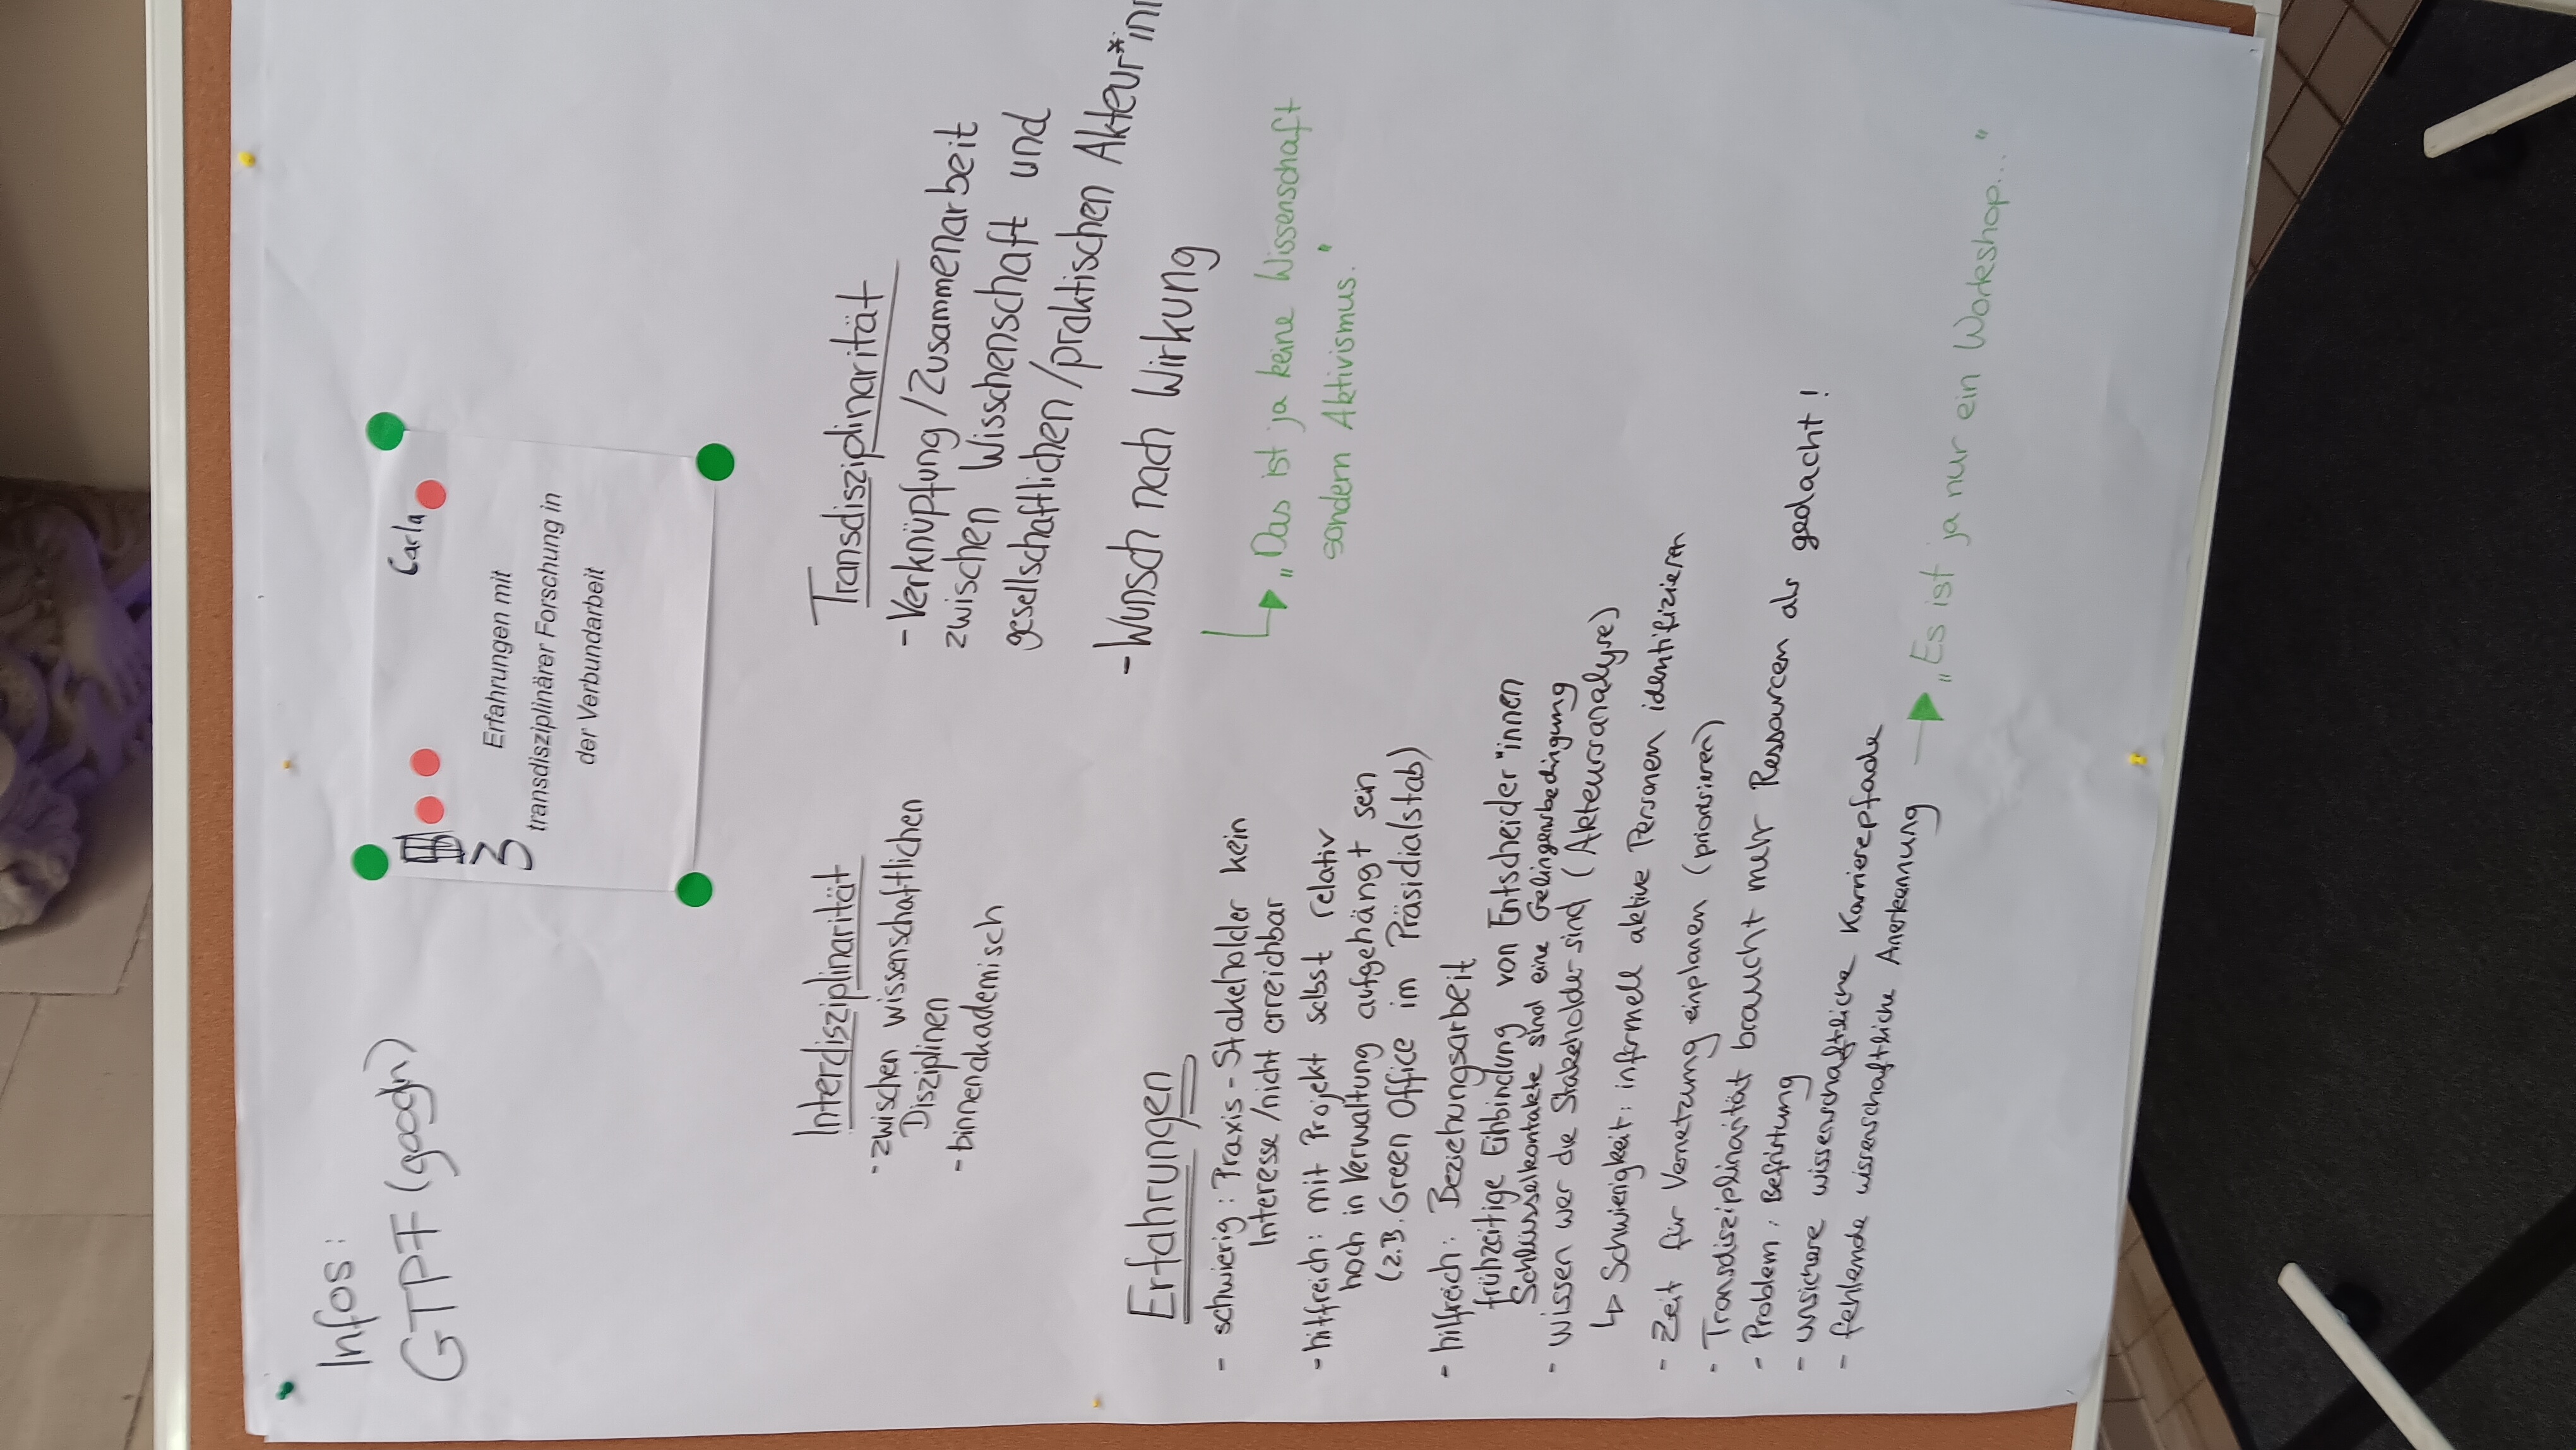 Infos:
GTPF (googln)
Carla
3
Erfahrungen mit
transdisziplinärer Forschung in
der Verbundarbeit
Interdisziplinarität
- zwischen wissenschaftlichen
Disziplinen
- binnenakademisch
Transdisziplinarität
- Verknüpfung/Zusammenarbeit
zwischen Wisschenschaft und
gesellschaftlichen/praktischen Akteur*inn
- Wunsch nach Wirkung
„Das ist ja keine Wissenschaft
sondern Aktivismus."
Erfahrungen
- schwierig: Praxis-Stakeholder kein
Interesse/nicht erreichbar
- hilfreich: mit Projekt selbst relativ
hoch in Verwaltung aufgehängt sein
(z.B. Green Office im Präsidialstab)
- hilfreich: Beziehungsarbeit
frühzeitige Einbindung von Entscheider*innen
Schlüsselkontakte sind eine Gelingensbedingung
- Wissen wer die Stakeholder sind (Akteursanalyse)
↳ Schwierigkeit: informell aktive Personen identifizieren
- Zeit für Vernetzung einplanen (priorisieren)
- Transdisziplinarität braucht mehr Ressourcen als gedacht!
- Problem: Befristung
- unsichere wissenschaftliche Karrierepfade
- fehlende wissenschaftliche Anerkennung → „Es ist ja nur ein Workshop..."